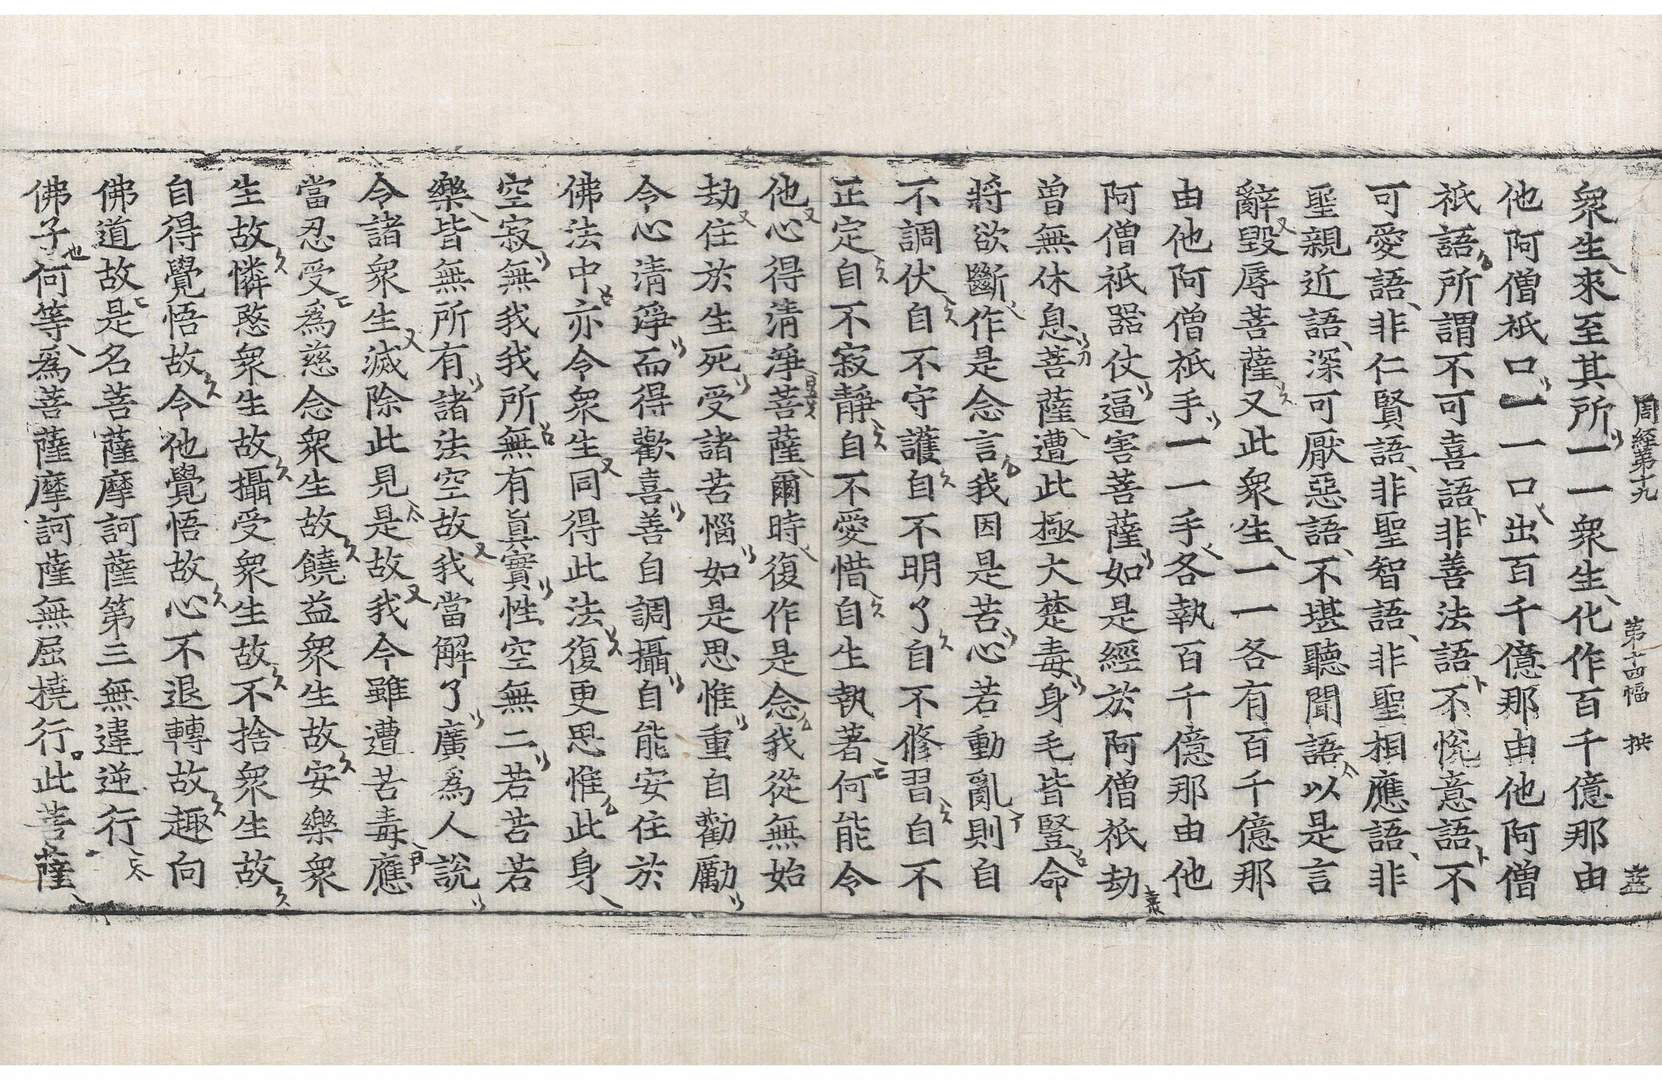 周經第十九　第十四幅　拱
衆生來至其所一一衆生化作百千億那由
他阿僧祇口一一口出百千億那由他阿僧
祇語所謂不可喜語非善法語不悅意語不
可愛語非仁賢語非聖智語非聖相應語非
聖親近語深可厭惡語不堪聽聞語以是言
辭毀辱菩薩又此衆生一一各有百千億那
由他阿僧祇手一一手各執百千億那由他
阿僧祇器仗逼害菩薩如是經於阿僧祇劫
曾無休息菩薩遭此極大楚毒身毛皆竪命
將欲斷作是念言我因是苦心若動亂則自
不調伏自不守護自不明了自不修習自不
正定自不寂靜自不愛惜自生執著何能令
他心得清淨菩薩爾時復作是念我從無始
劫住於生死受諸苦惱如是思惟重自勸勵
令心清淨而得歡喜善自調攝自能安住於
佛法中亦令衆生同得此法復更思惟此身
空寂無我我所無有眞實性空無二若苦若
樂皆無所有諸法空故我當解了廣爲人說
令諸衆生滅除此見是故我今雖遭苦毒應
當忍受爲慈念衆生故饒益衆生故安樂衆
生故憐愍衆生故攝受衆生故不捨衆生故
自得覺悟故令他覺悟故心不退轉故趣向
佛道故是名菩薩摩訶薩第三無違逆行
佛子何等爲菩薩摩訶薩無屈橈行此菩薩